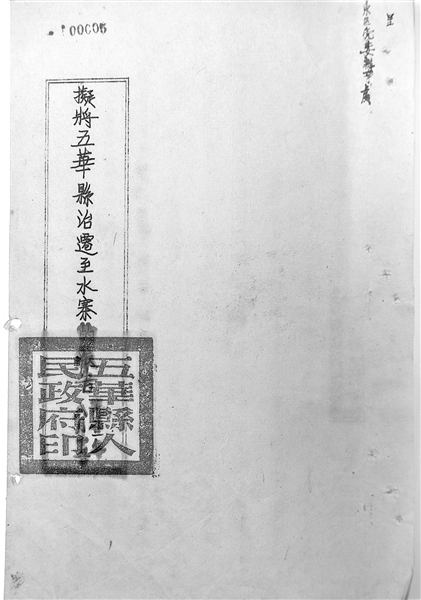 00005
呈
擬將五華縣治遷至水寨告
五華縣人
民政府印